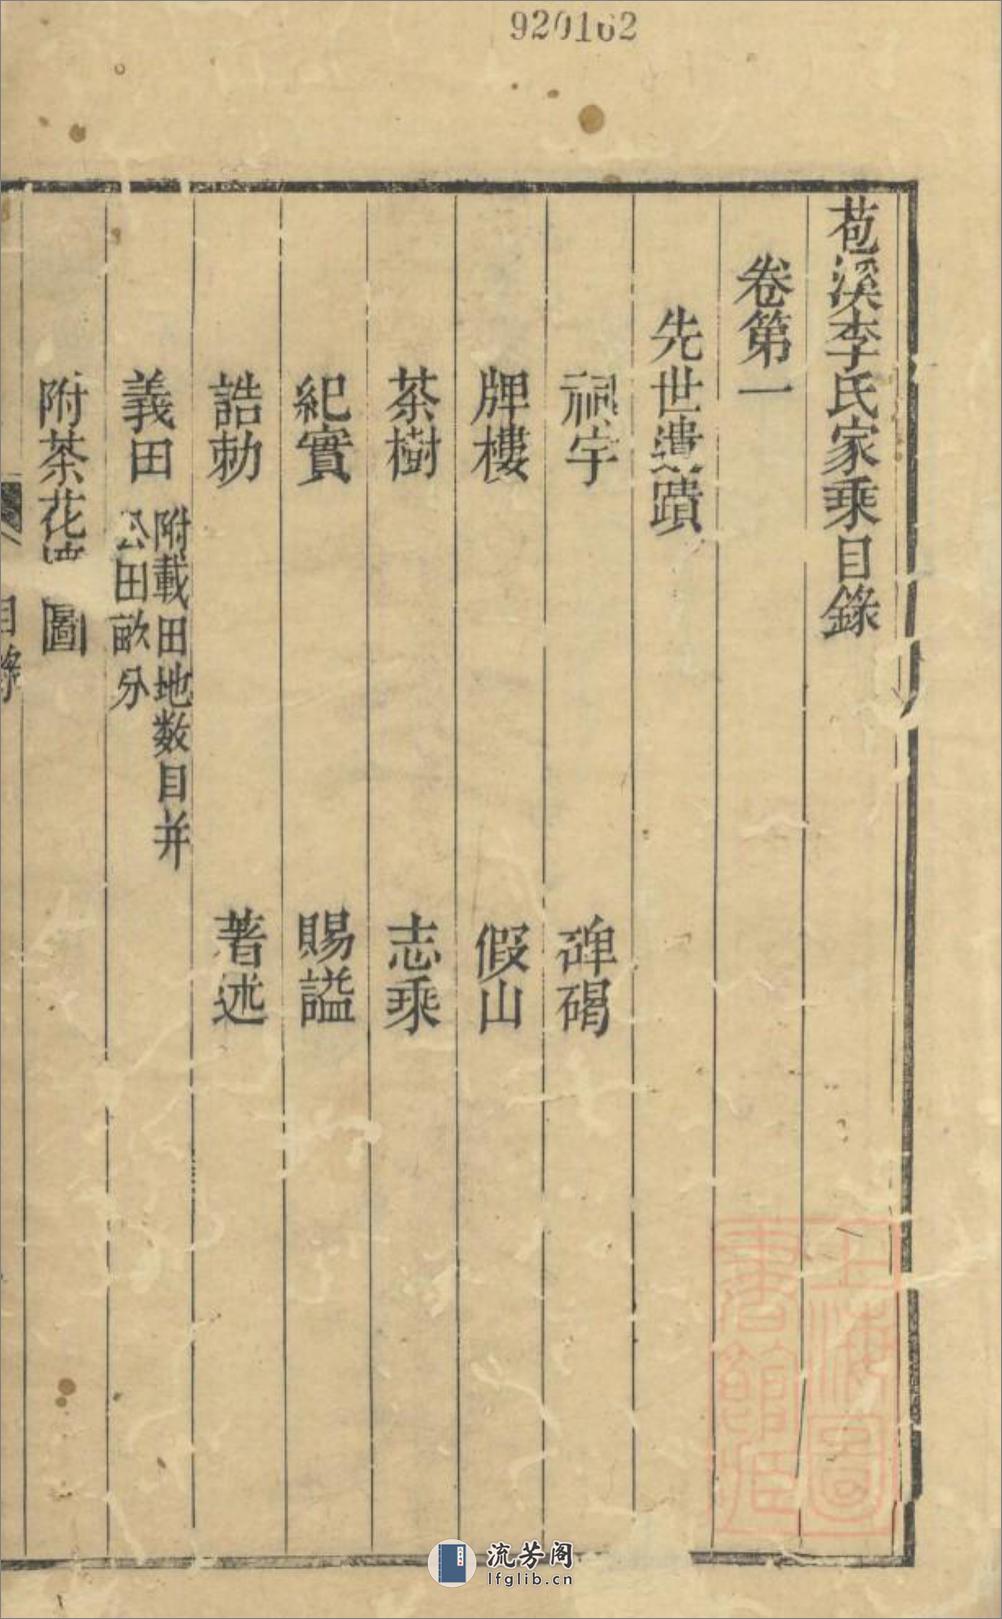 920162
苞溪李氏家乘目錄
卷第一
先世遺蹟
祠宇 碑碣
牌樓 假山
茶樹 志乘
紀實 賜謚
誥勅 著述
義田 附載田地數目并
公田畝分
附茶花 圖
目錄
上海圖書館藏
流芳阁
lfglib.cn